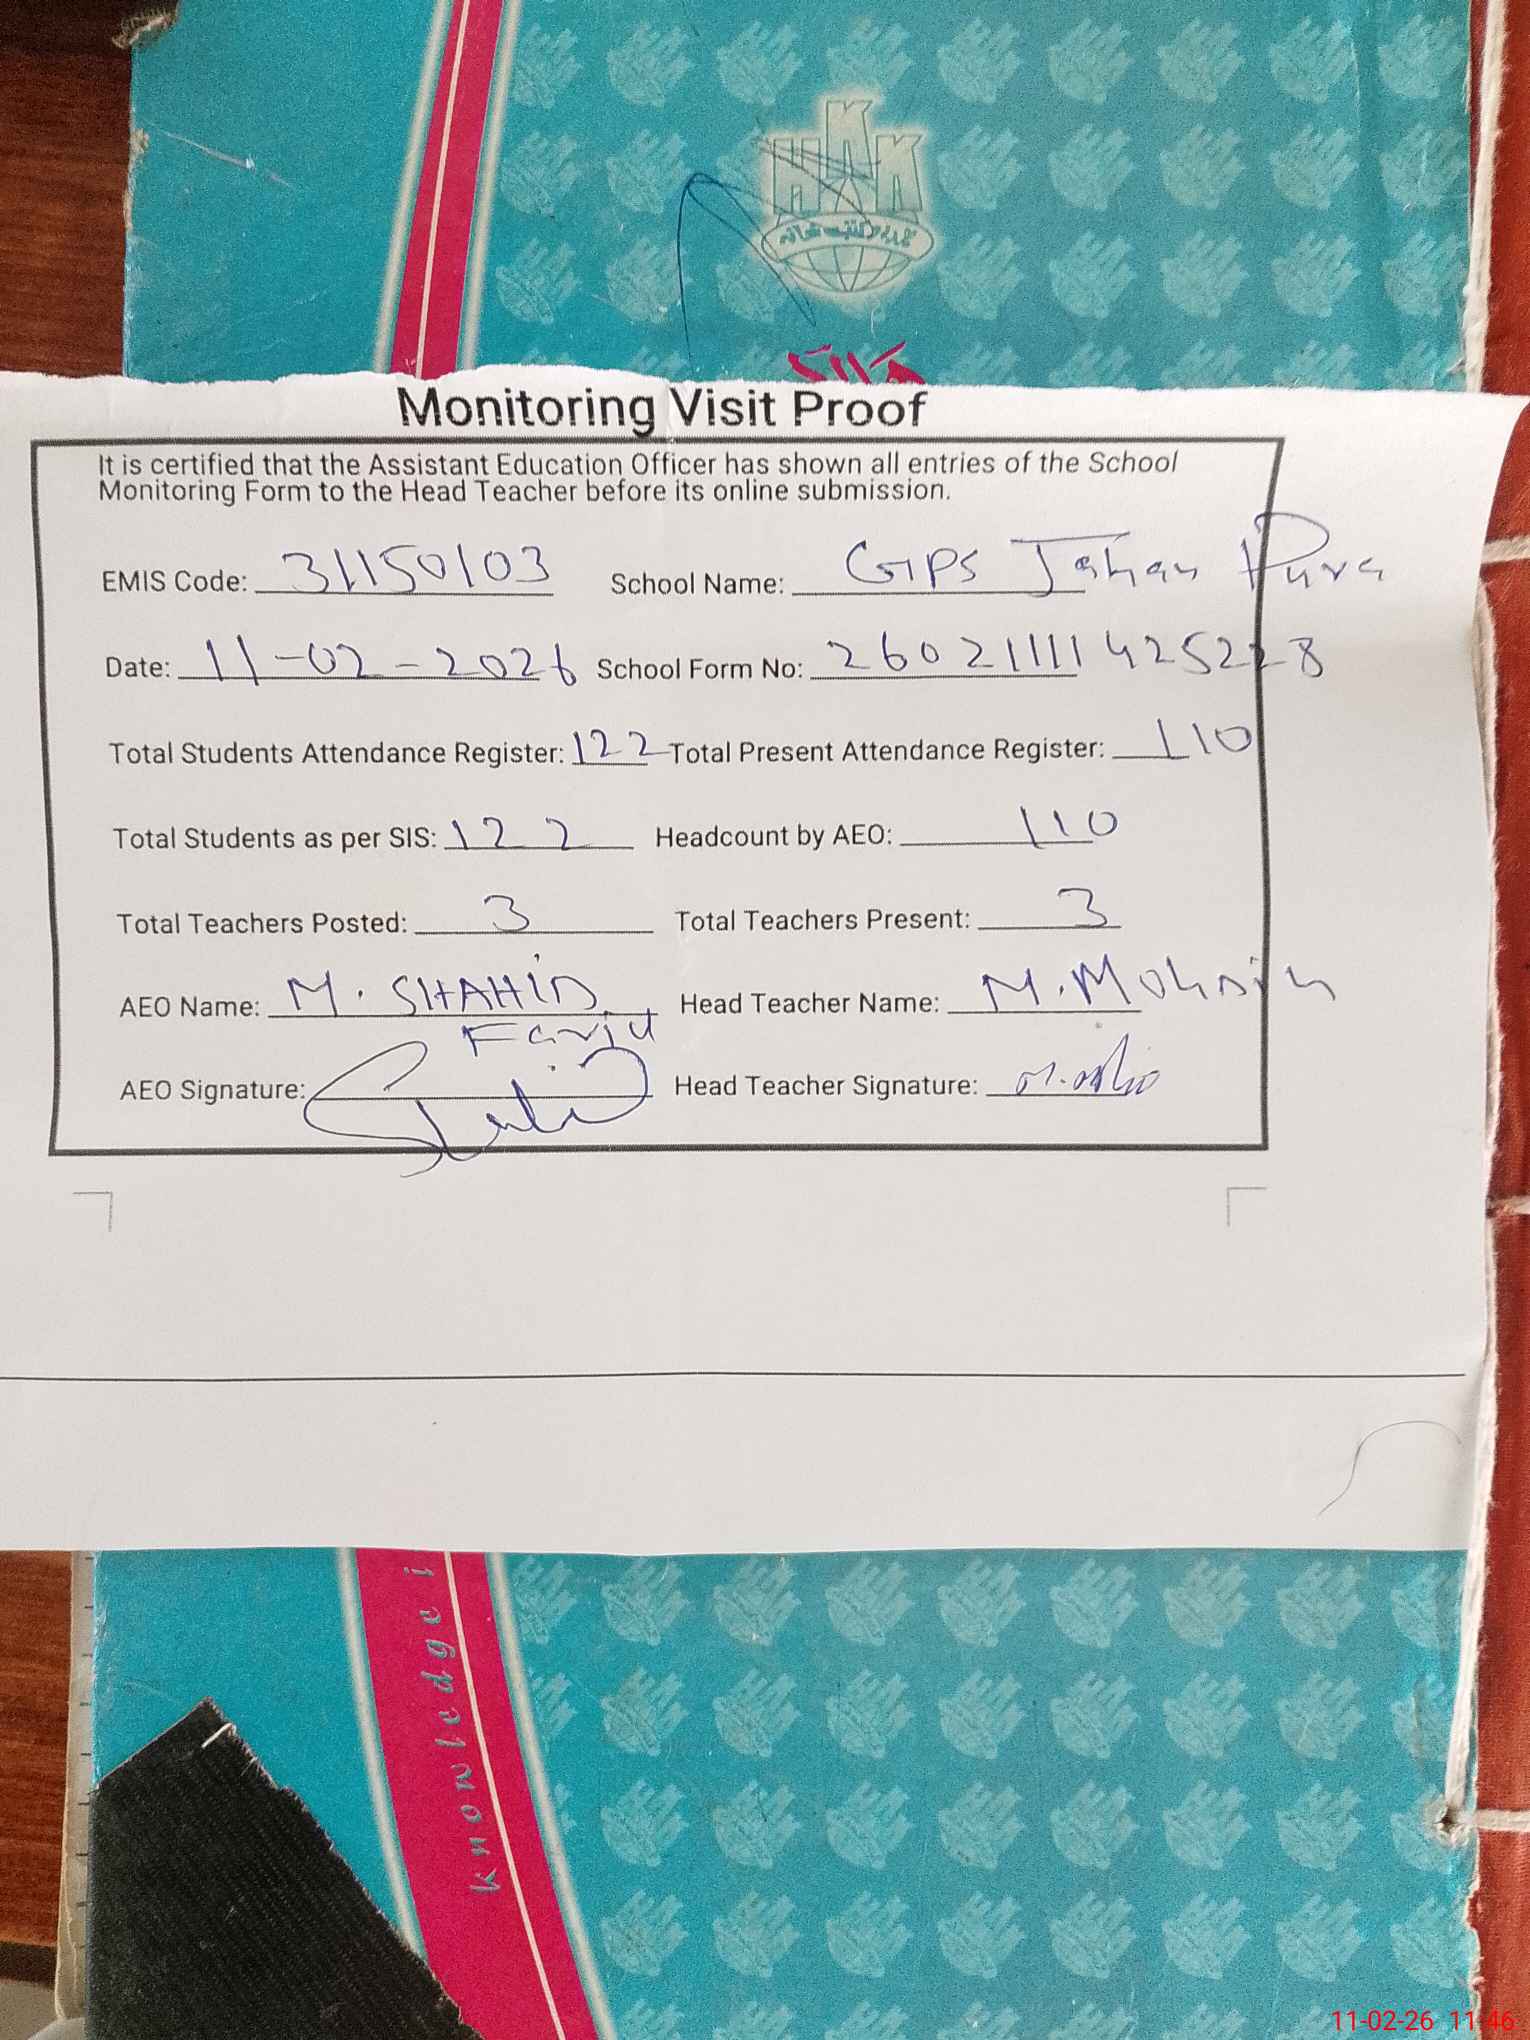 HKK
Monitoring Visit Proof
It is certified that the Assistant Education Officer has shown all entries of the School
Monitoring Form to the Head Teacher before its online submission.
EMIS Code: 31150103 School Name: GPS Jahan Pura
Date: 11-02-2026 School Form No: 26021111425228
Total Students Attendance Register: 122 Total Present Attendance Register: 110
Total Students as per SIS: 122 Headcount by AEO: 110
Total Teachers Posted: 3 Total Teachers Present: 3
AEO Name: M. SHAHID Head Teacher Name: M. Mohsin
Farid
AEO Signature: Head Teacher Signature:
knowledge i
11-02-26 11:46